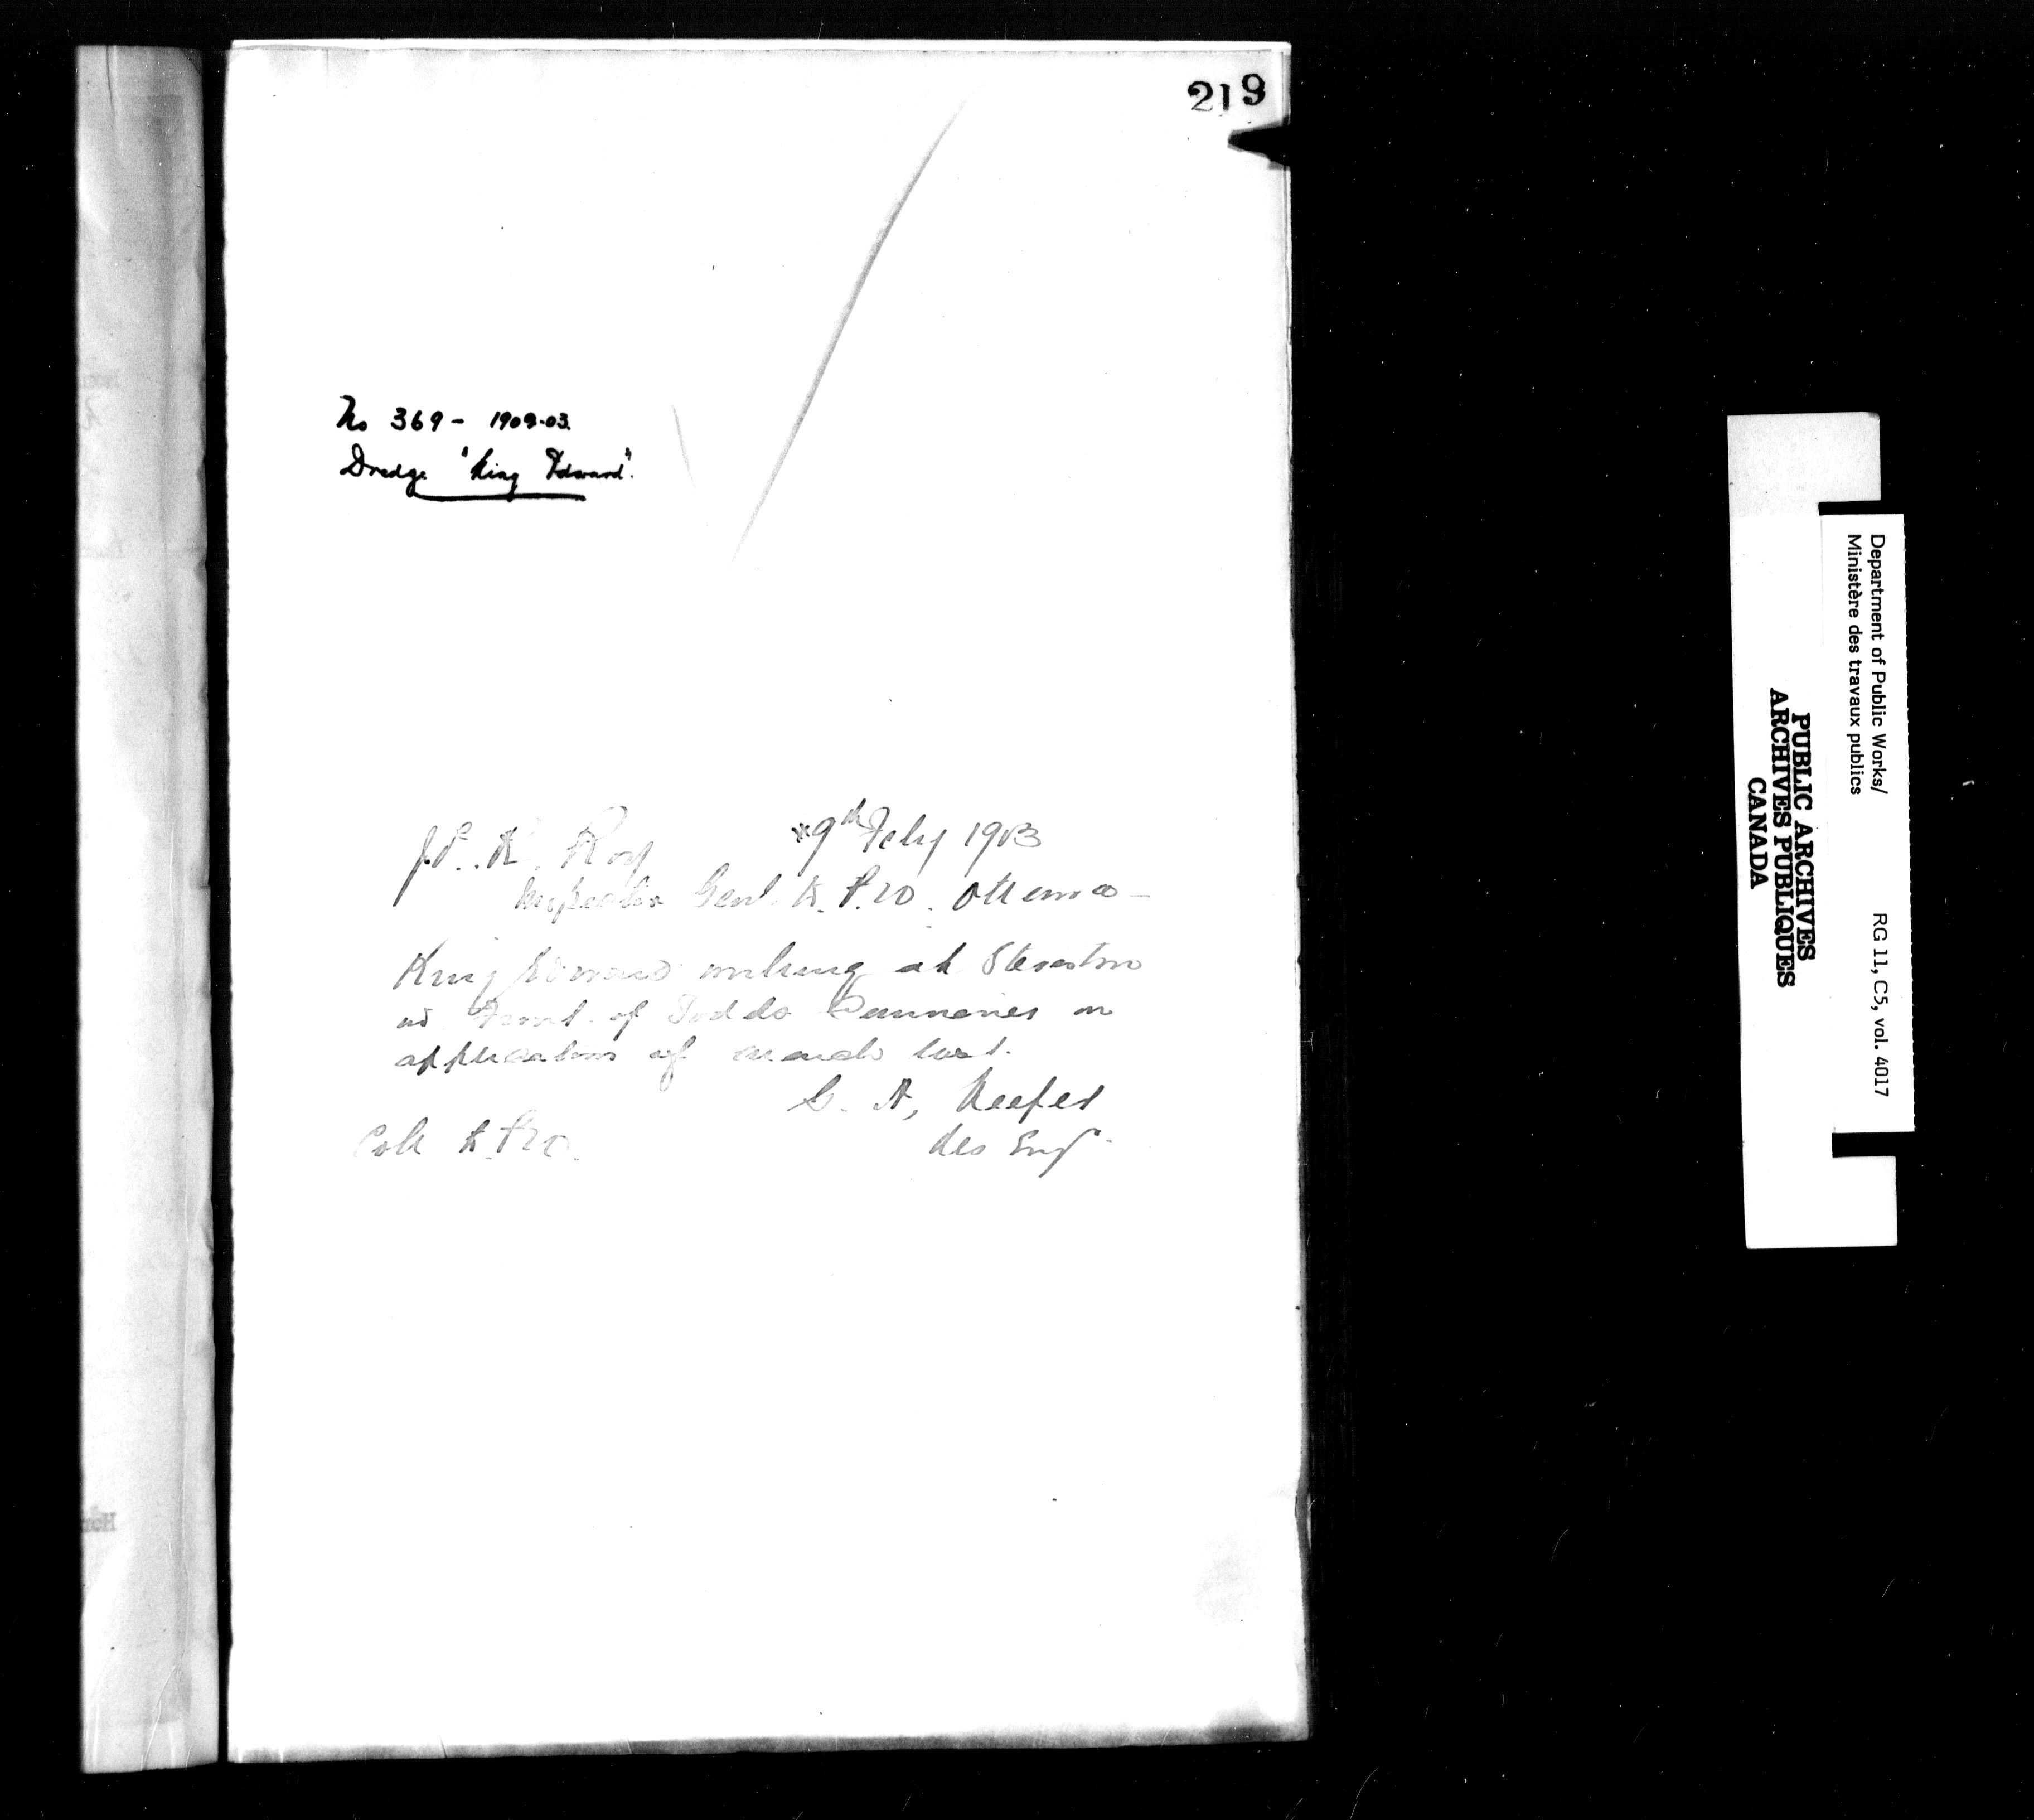 219
No 369 - 1902-03.
Dredge "King Edward".
9th Feby 1903
J.P. R. Roy
Inspector Genl. D. P. W. Ottawa —
King Edward working at Steveston
in front of Todds Canneries on
application of
G. A. Keefer
Res Engr.
Coll D. P. W.
Department of Public Works/
Ministère des travaux publics
RG 11, C5, vol. 4017
PUBLIC ARCHIVES
ARCHIVES PUBLIQUES
CANADA